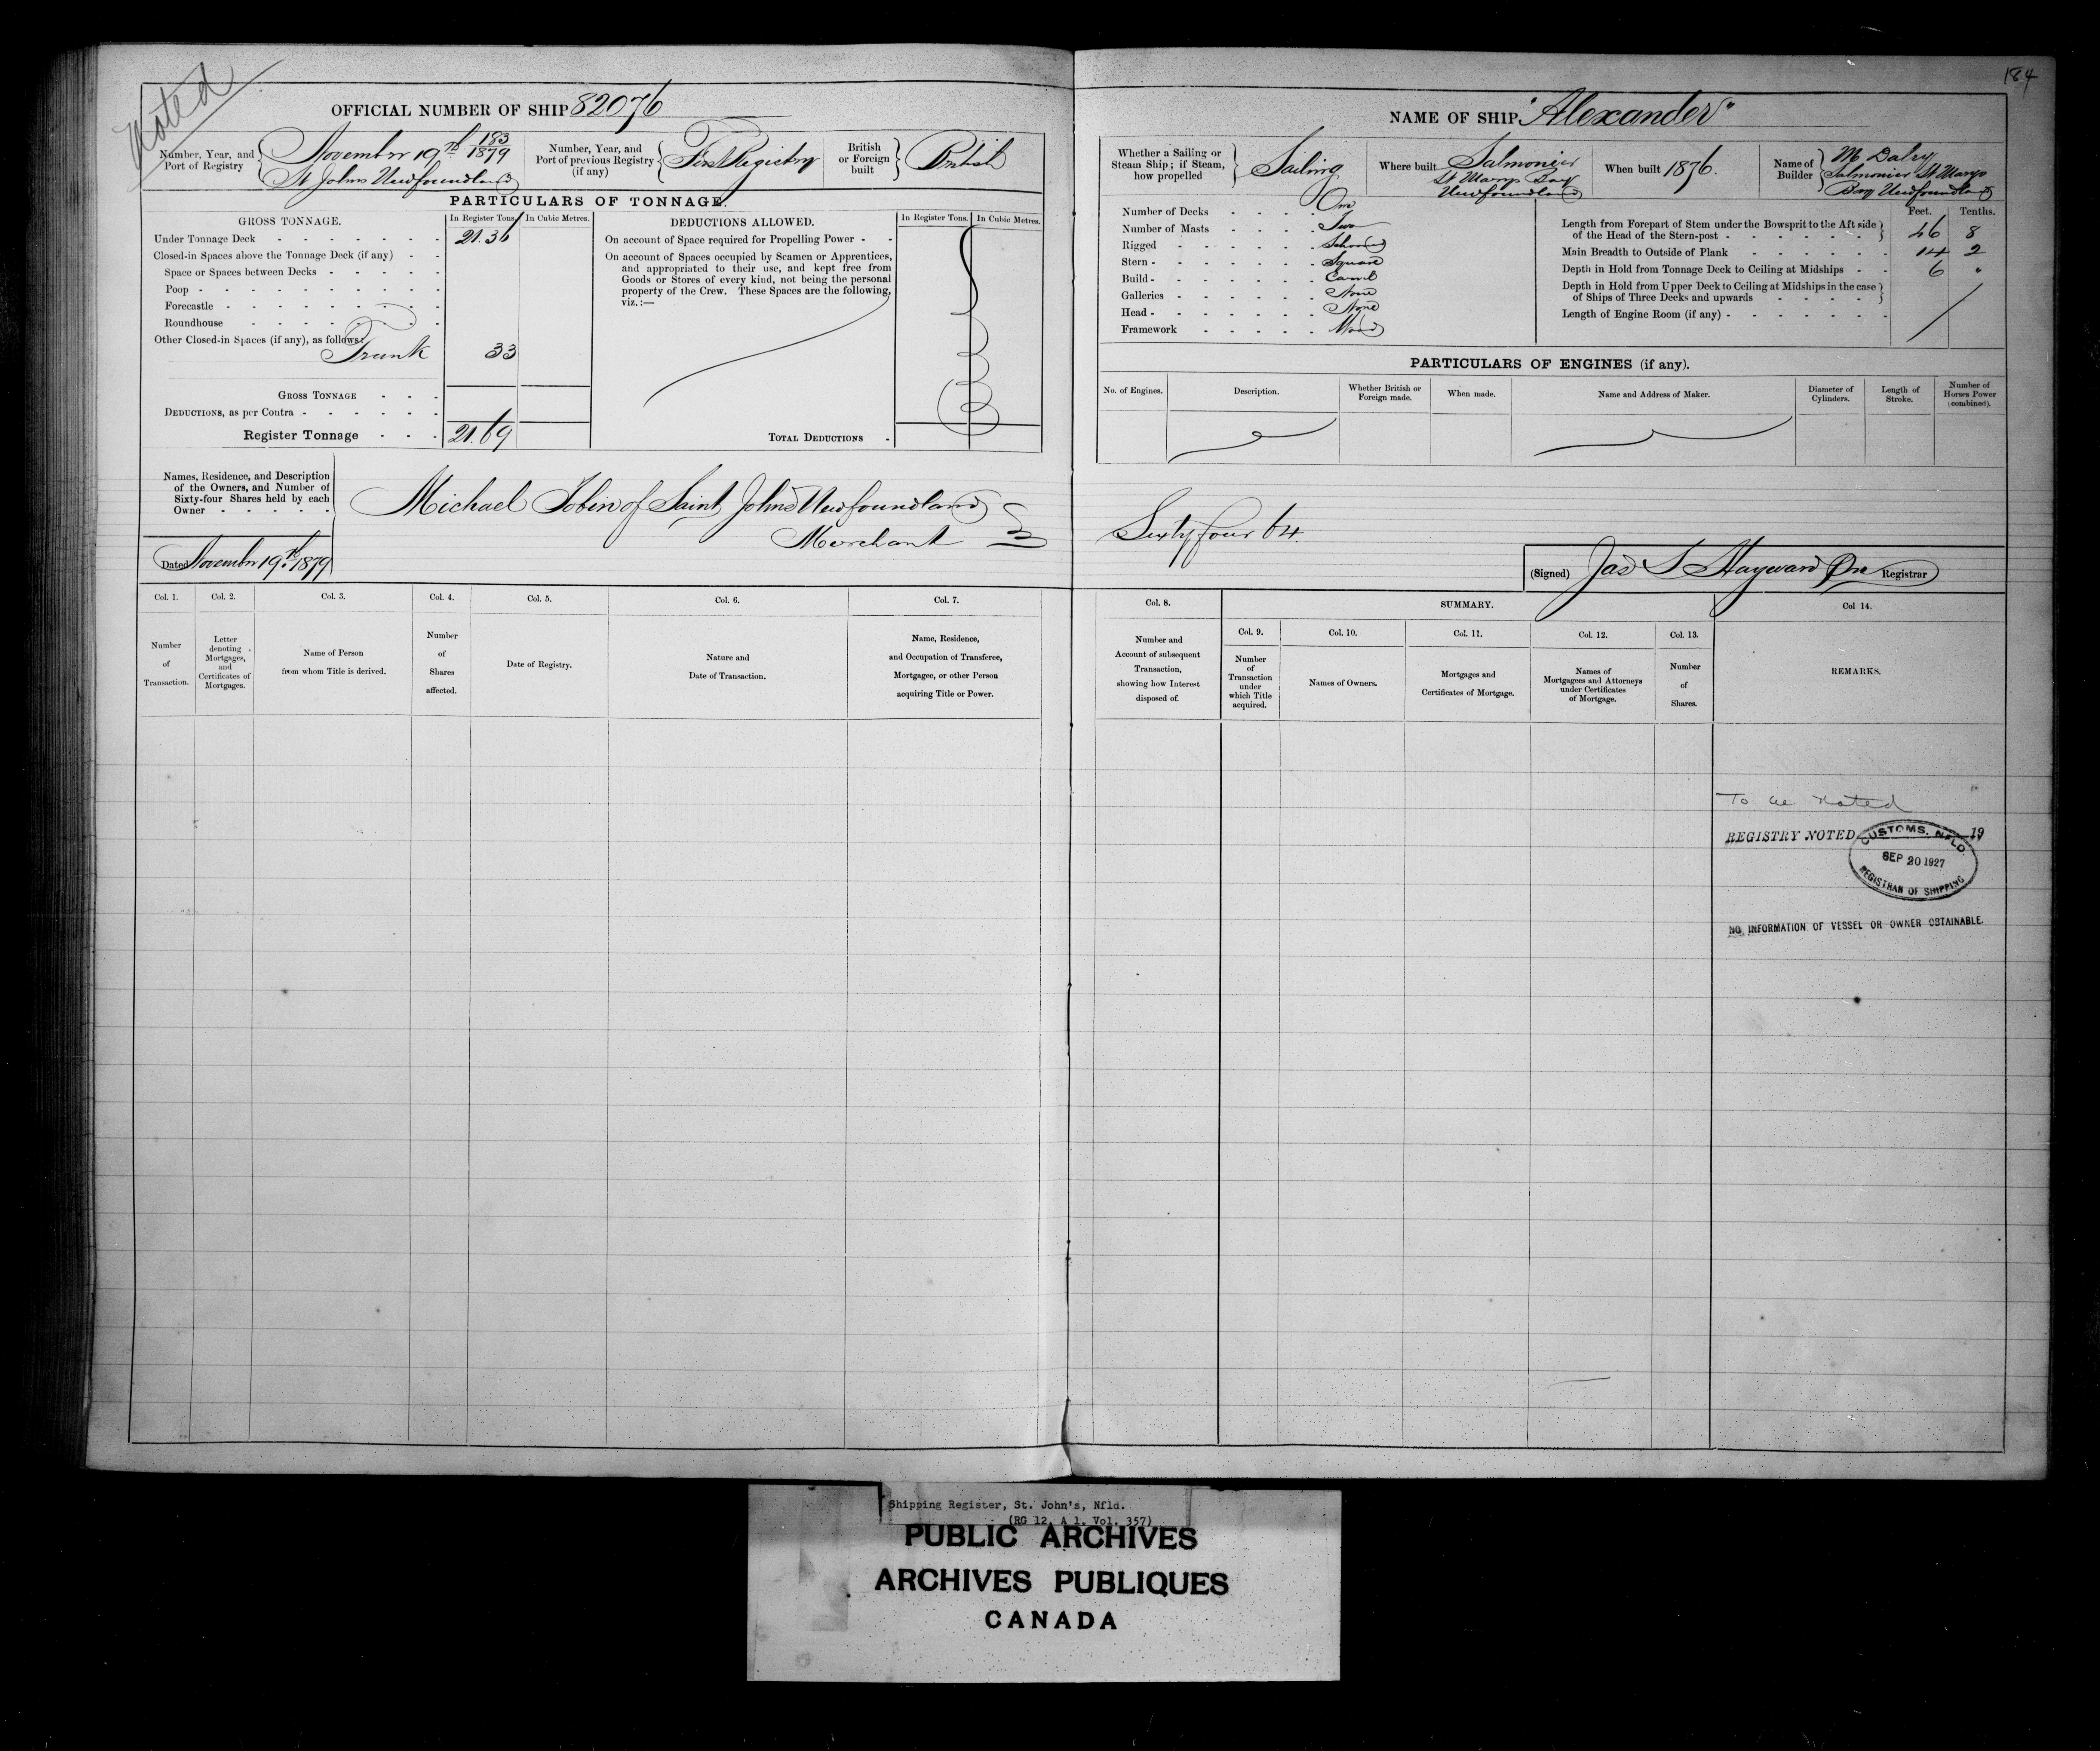 Noted
184
OFFICIAL NUMBER OF SHIP 82076
Number, Year, and Port of Registry
November 19th 183/1879
St Johns Newfoundland
Number, Year, and Port of previous Registry (if any)
First Registry
British or Foreign built
British
PARTICULARS OF TONNAGE.
GROSS TONNAGE.
In Register Tons.
In Cubic Metres.
Under Tonnage Deck 21.36
Closed-in Spaces above the Tonnage Deck (if any)
Space or Spaces between Decks
Poop
Forecastle
Roundhouse
Other Closed-in Spaces (if any), as follows:
Trunk 33
GROSS TONNAGE
DEDUCTIONS, as per Contra
Register Tonnage 21.69
DEDUCTIONS ALLOWED.
In Register Tons.
In Cubic Metres.
On account of Space required for Propelling Power
On account of Spaces occupied by Seamen or Apprentices,
and appropriated to their use, and kept free from
Goods or Stores of every kind, not being the personal
property of the Crew. These Spaces are the following,
viz.:—
TOTAL DEDUCTIONS
Names, Residence, and Description
of the Owners, and Number of
Sixty-four Shares held by each
Owner
Michael Tobin of Saint Johns Newfoundland
Merchant
Dated November 19th 1879
NAME OF SHIP "Alexander"
Whether a Sailing or Steam Ship; if Steam, how propelled
Sailing
Where built
Salmonier
St Marys Bay
Newfoundland
When built 1876.
Name of Builder
M Daley
Salmonier St Marys
Bay Newfoundland
Number of Decks One
Number of Masts Two
Rigged Schooner
Stern Square
Build Carvel
Galleries None
Head None
Framework Wood
Feet. Tenths.
Length from Forepart of Stem under the Bowsprit to the Aft side
of the Head of the Stern-post 46 8
Main Breadth to Outside of Plank 14 2
Depth in Hold from Tonnage Deck to Ceiling at Midships 6 "
Depth in Hold from Upper Deck to Ceiling at Midships in the case
of Ships of Three Decks and upwards
Length of Engine Room (if any)
PARTICULARS OF ENGINES (if any).
No. of Engines.
Description.
Whether British or Foreign made.
When made.
Name and Address of Maker.
Diameter of Cylinders.
Length of Stroke.
Number of Horses Power (combined).
Sixty four 64.
(Signed) Jas S Hayward Registrar
Col. 1. Col. 2. Col. 3. Col. 4. Col. 5. Col. 6. Col. 7.
Number of Transaction.
Letter denoting Mortgages, and Certificates of Mortgages.
Name of Person from whom Title is derived.
Number of Shares affected.
Date of Registry.
Nature and Date of Transaction.
Name, Residence, and Occupation of Transferee, Mortgagee, or other Person acquiring Title or Power.
Col. 8.
SUMMARY.
Col. 9. Col. 10. Col. 11. Col. 12. Col. 13. Col 14.
Number and Account of subsequent Transaction, showing how Interest disposed of.
Number of Transaction under which Title acquired.
Names of Owners.
Mortgages and Certificates of Mortgage.
Names of Mortgagees and Attorneys under Certificates of Mortgage.
Number of Shares.
REMARKS.
To be Noted
REGISTRY NOTED 19
CUSTOMS, NFLD.
SEP 20 1927
REGISTRAR OF SHIPPING
NO INFORMATION OF VESSEL OR OWNER OBTAINABLE.
Shipping Register, St. John's, Nfld.
(RG 12, A 1, Vol. 357)
PUBLIC ARCHIVES
ARCHIVES PUBLIQUES
CANADA